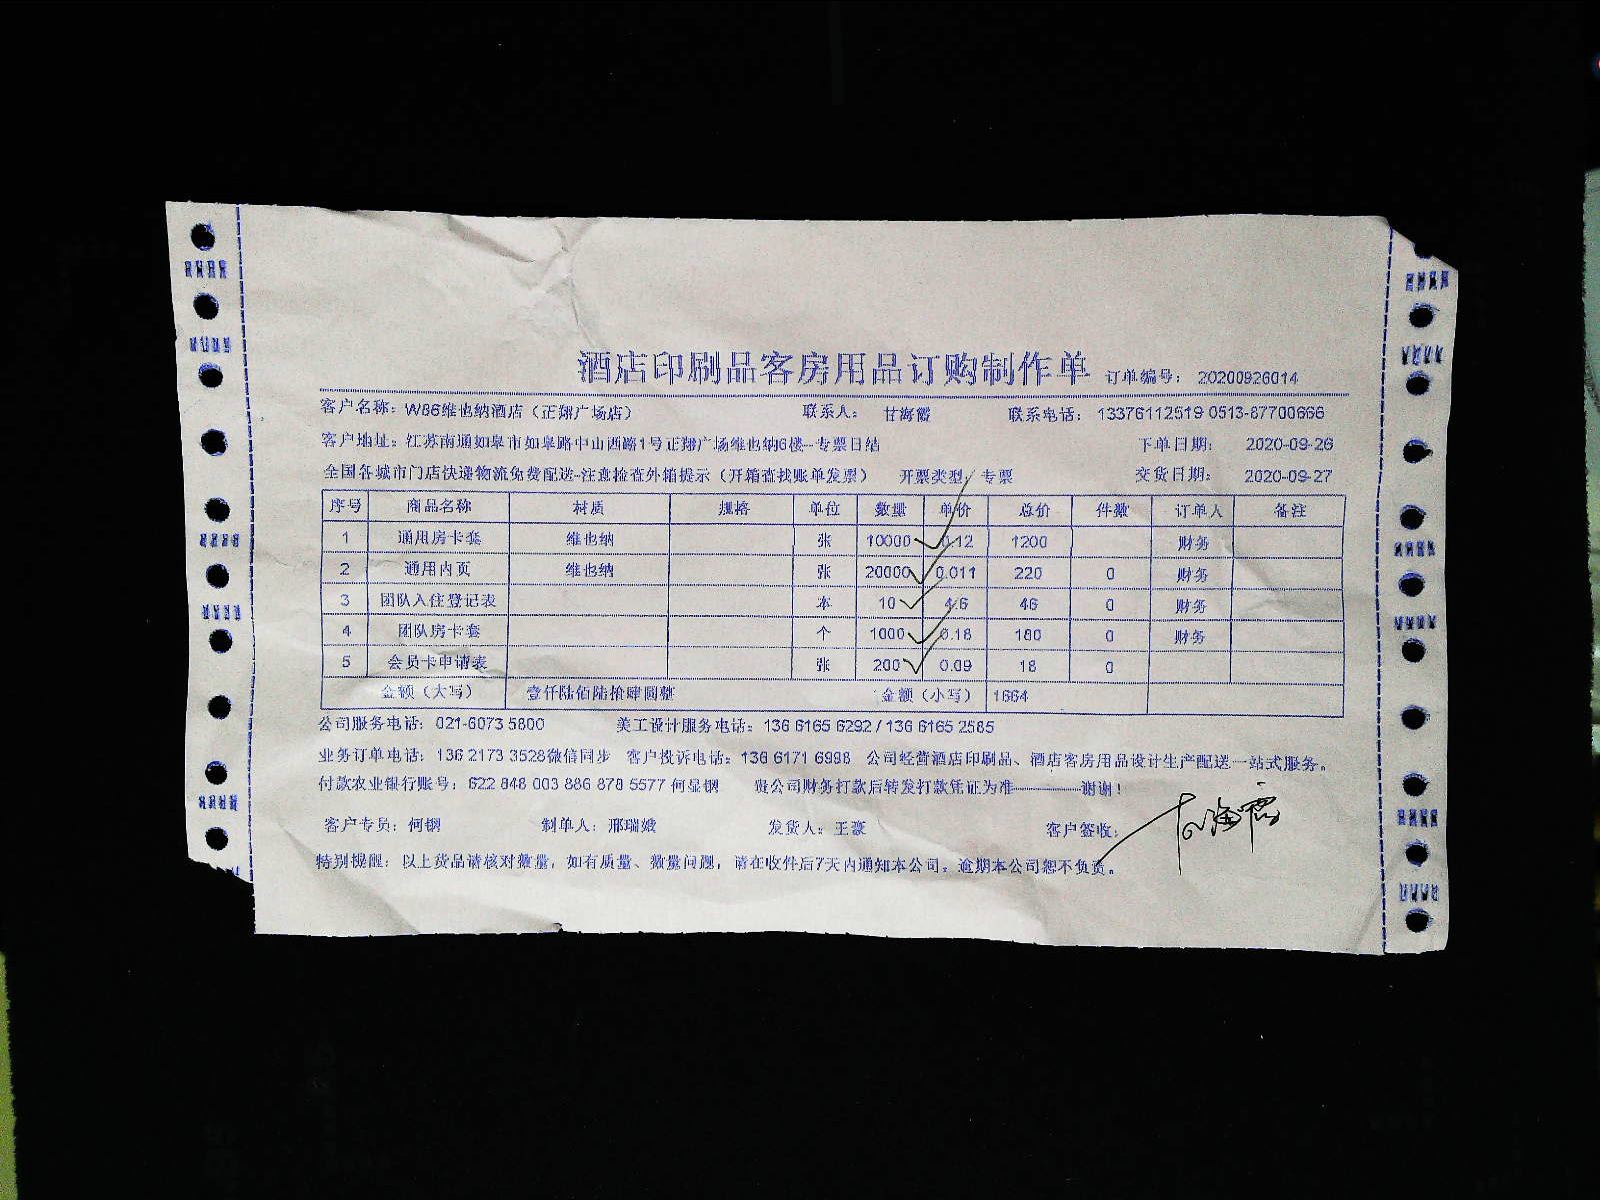 酒店印刷品客房用品订购制作单 订单编号： 20200926014
客户名称：W86维也纳酒店（正翔广场店） 联系人： 甘海霞 联系电话： 13376112519 0513-87700666
客户地址：江苏南通如皋市如皋路中山西路1号正翔广场维也纳6楼--专票日结 下单日期： 2020-09-26
全国各城市门店快递物流免费配送-注意检查外箱提示（开箱查找账单发票） 开票类型：专票 交货日期： 2020-09-27
序号 商品名称 材质 规格 单位 数量 单价 总价 件数 订单人 备注
1 通用房卡套 维也纳 张 10000 0.12 1200 财务
2 通用内页 维也纳 张 20000 0.011 220 0 财务
3 团队入住登记表 本 10 4.6 46 0 财务
4 团队房卡套 个 1000 0.18 180 0 财务
5 会员卡申请表 张 200 0.09 18 0
金额（大写） 壹仟陆佰陆拾肆圆整 金额（小写） 1664
公司服务电话：021-6073 5800 美工设计服务电话：136 6165 6292 / 136 6165 2585
业务订单电话：136 2173 3528微信同步 客户投诉电话：136 6171 6998 公司经营酒店印刷品、酒店客房用品设计生产配送一站式服务。
付款农业银行账号：622 848 003 886 878 5577 何显钢 贵公司财务打款后转发打款凭证为准————谢谢！
客户专员：何钢 制单人：邢瑞娥 发货人：王豪 客户签收： 甘海霞
特别提醒：以上货品请核对数量，如有质量、数量问题，请在收件后7天内通知本公司。逾期本公司恕不负责。